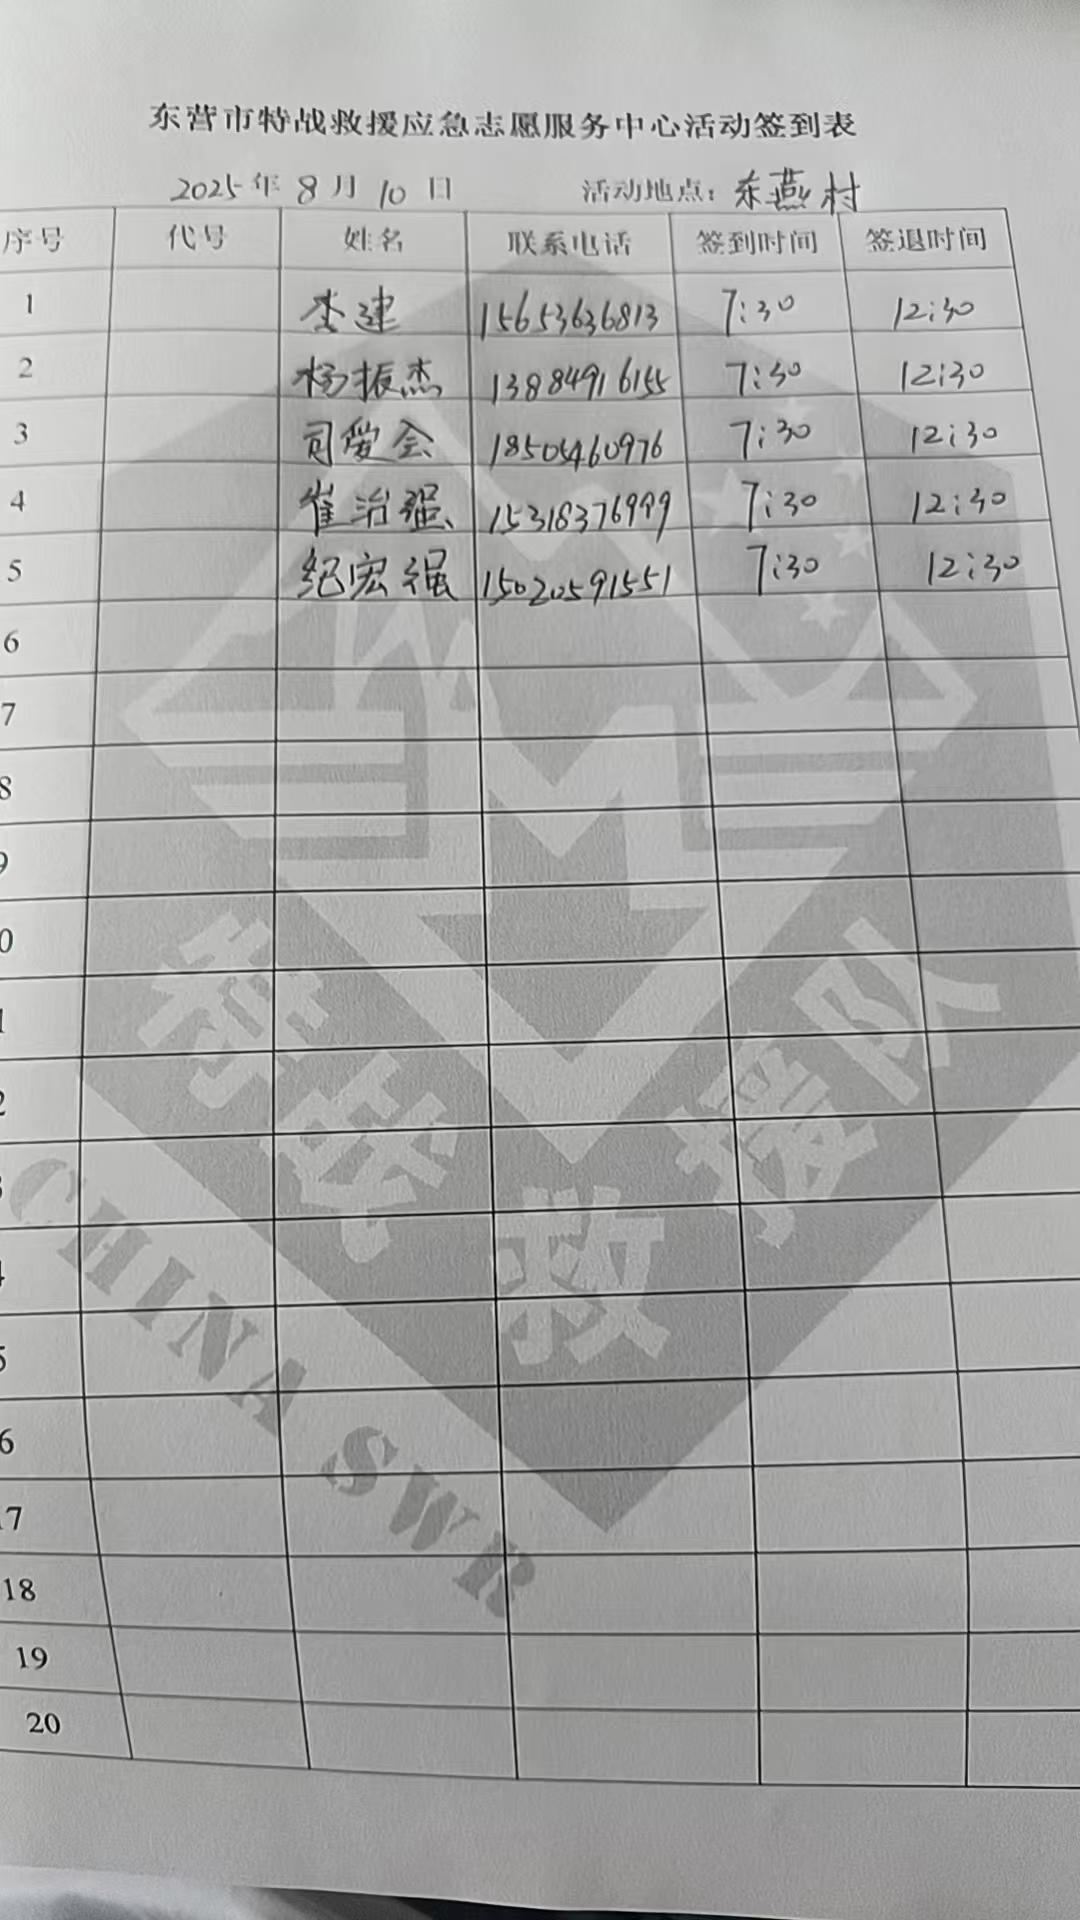 东营市特战救援应急志愿服务中心活动签到表
2025年 8月 10日 活动地点：东燕村
序号 代号 姓名 联系电话 签到时间 签退时间
1 李建 15653636813 7:30 12:30
2 杨振杰 13884916155 7:30 12:30
3 司爱会 18505460976 7:30 12:30
4 崔治强 15318376999 7:30 12:30
5 纪宏强 15020591551 7:30 12:30
6
7
8
9
0
1
2
3
4
5
6
17
18
19
20
特战救援队
CHINA SWR